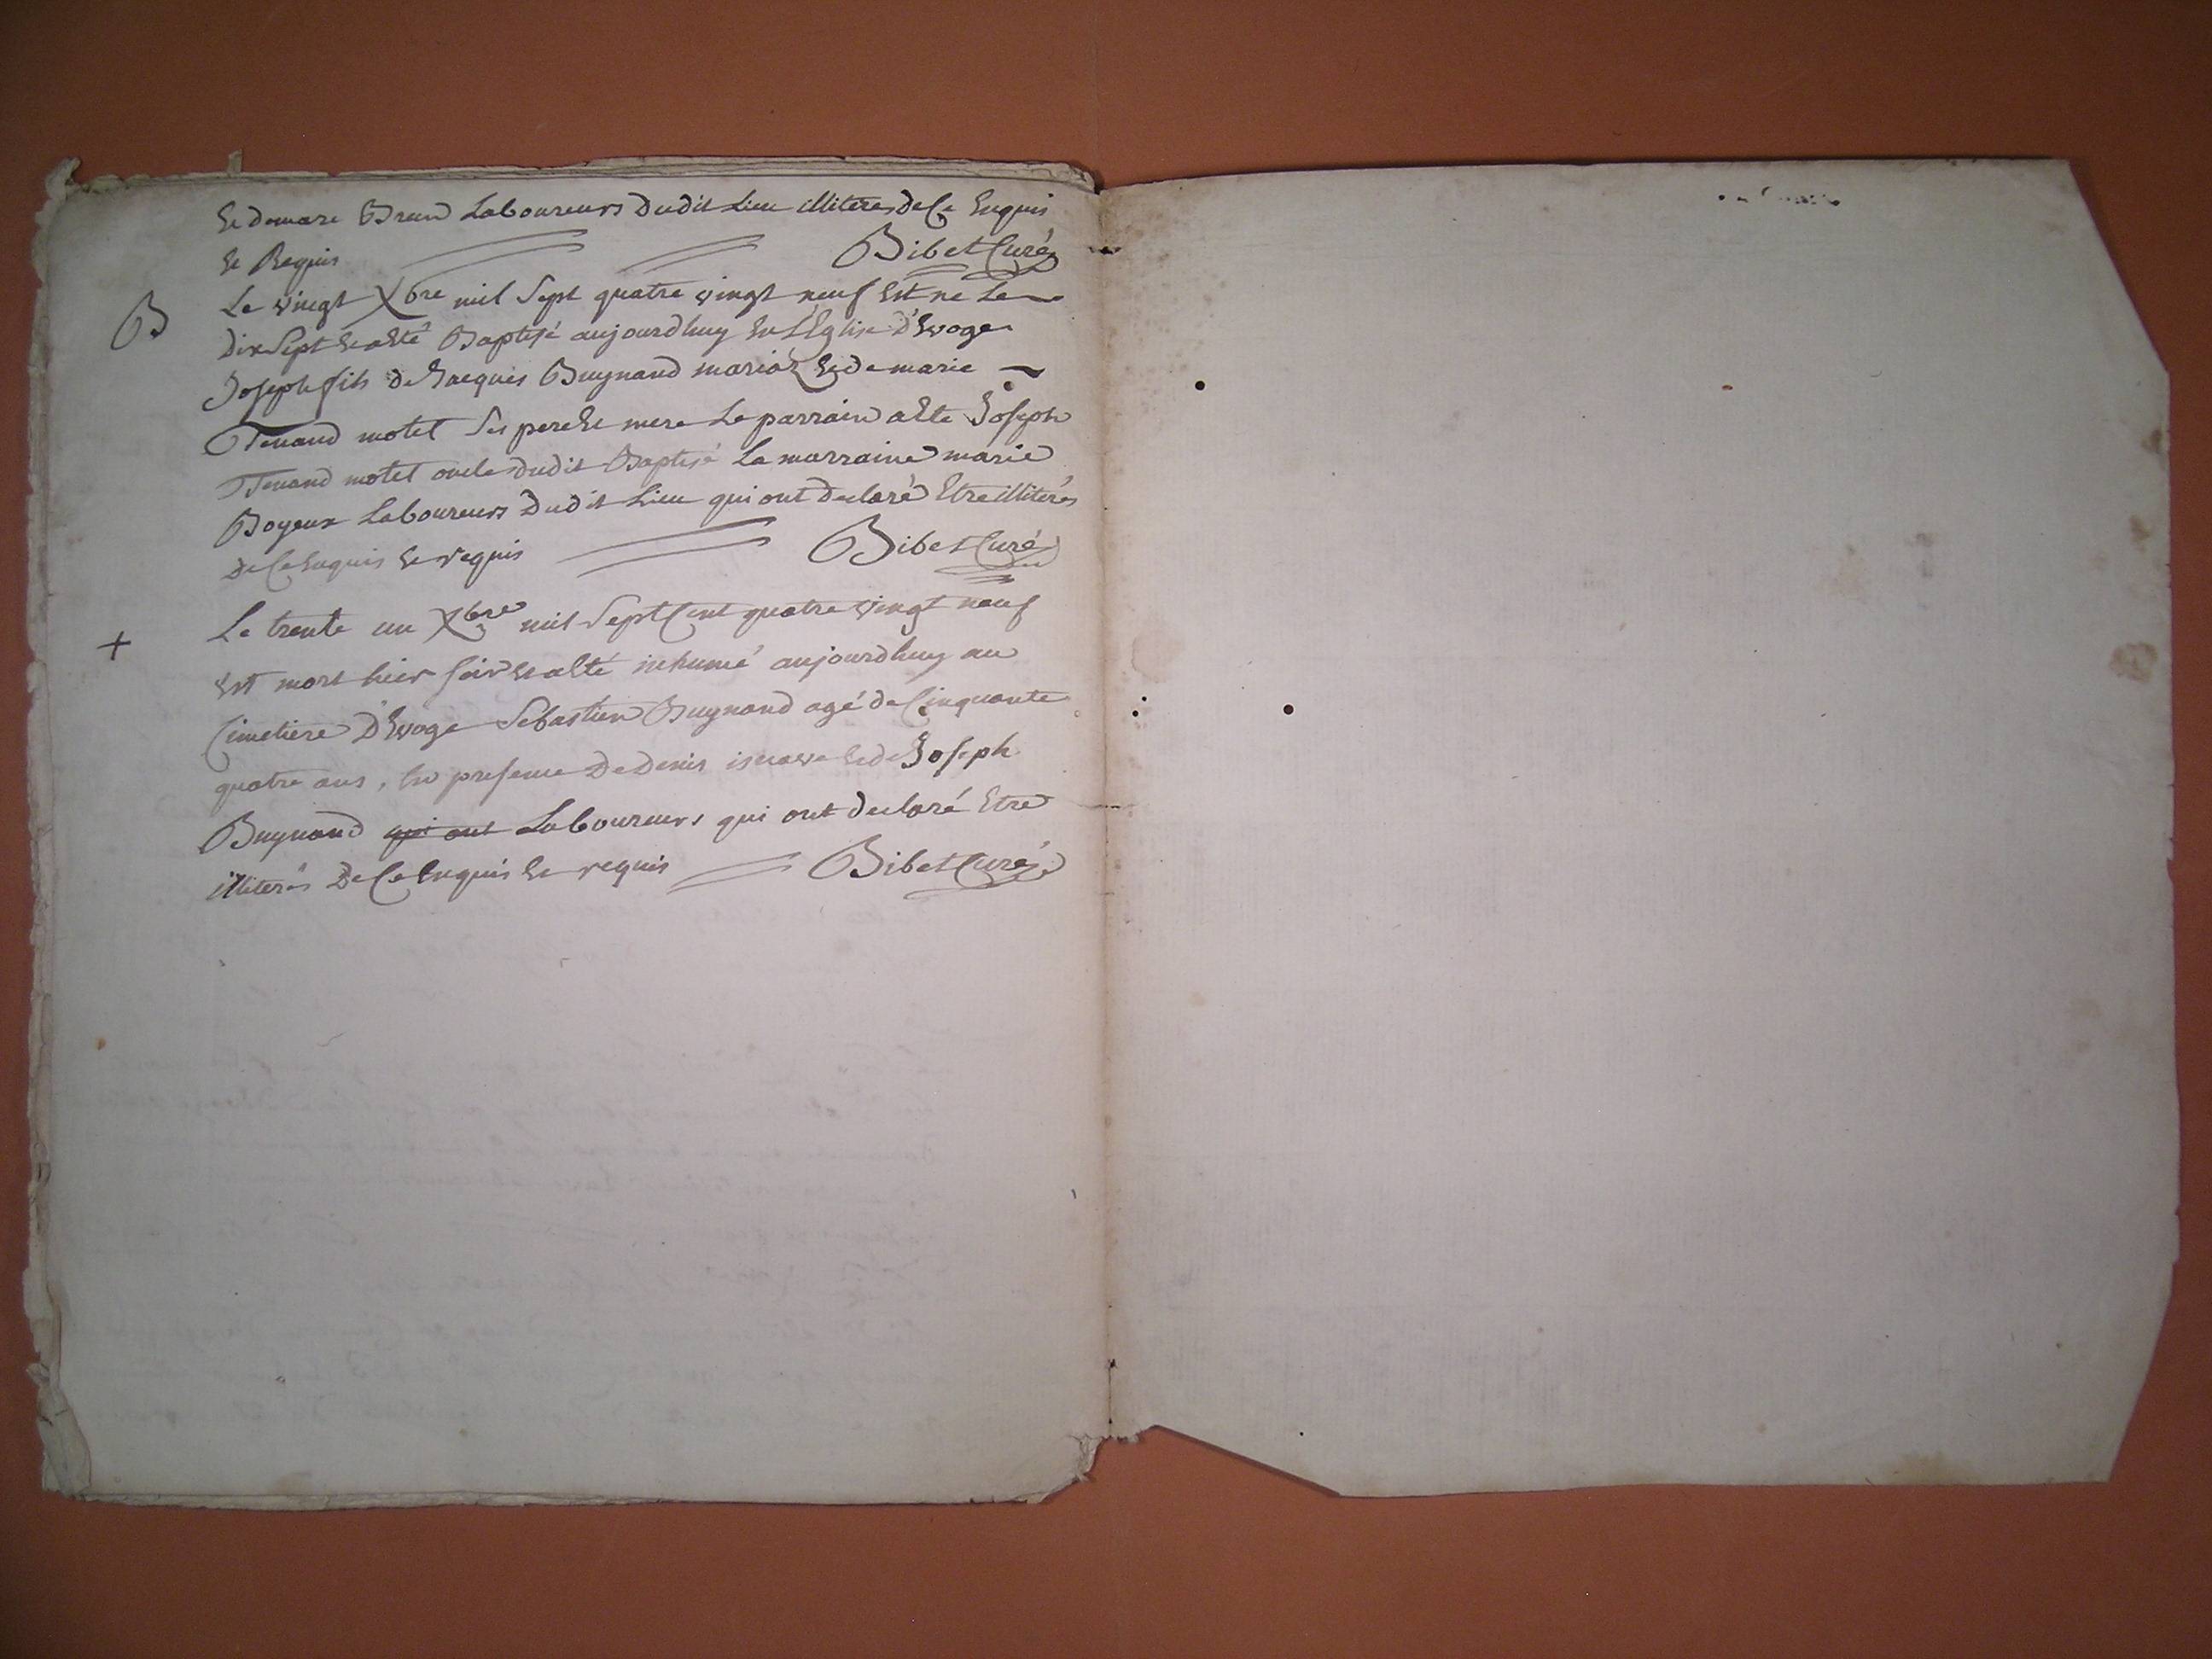 Et de marc Brun Laboureurs dudit Lieu illiteres de Ce Enquis
Et Requis Bibet Curé
B Le vingt Xbre mil Sept quatre vingt neuf Est ne Le
Dix Sept Et a Eté Baptisé aujourdhuy En L'Eglise d'Evoge
Joseph fils de Jacques Buynand mariaz Et de marie
Tenand motet Ses pere Et mere Le parrain a Ete Joseph
Tenand motet oncle dudit Baptisé La marraine marie
Boyeux Laboureurs Dudit Lieu qui ont declaré Etre illiterés
De Ce Enquis Et requis Bibet Curé
+ Le trente un Xbre mil Sept Cent quatre vingt neuf
Est mort hier soir Et a Eté inhumé aujourdhuy au
Cimetiere D'Evoge Sebastien Buynand agé de Cinquante
quatre ans, En presence De Denis Et de Joseph
Buynand qui ont Laboureurs qui ont declaré Etre
illiterés De Ce Enquis Et requis Bibet Curé